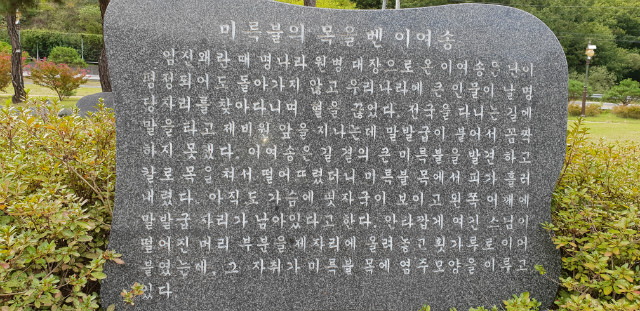 미륵불의 목을 벤 이여송
임진왜란 때 명나라 원병 대장으로 온 이여송은 난이
평정되어도 돌아가지 않고 우리나라에 큰 인물이 날 명
당자리를 찾아다니며 혈을 끊었다. 전국을 다니는 길에
말을 타고 제비원 앞을 지나는데 말발굽이 붙어서 꼼짝
하지 못했다. 이여송은 길 곁의 큰 미륵불을 발견 하고
칼로 목을 쳐서 떨어뜨렸더니 미륵불 목에서 피가 흘러
내렸다. 아직도 가슴에 핏자국이 보이고 왼쪽 어깨에
말발굽 자리가 남아있다고 한다. 안타깝게 여긴 스님이
떨어진 머리 부분을 제자리에 올려놓고 횟가루로 이어
붙였는데, 그 자취가 미륵불 목에 염주모양을 이루고
있다